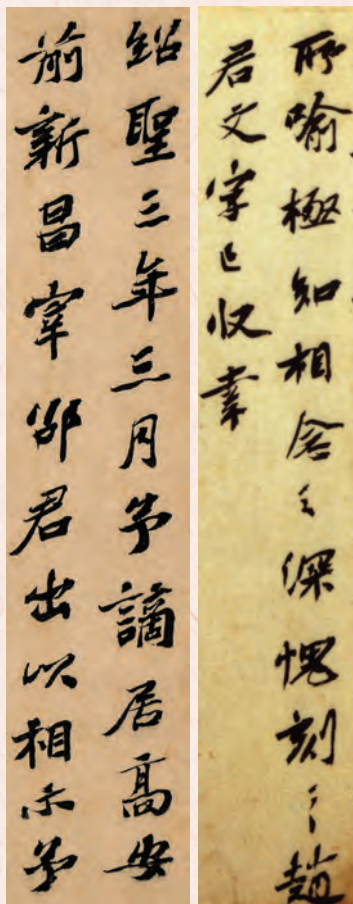 所喻極知相念之深愧刻〻趙
君文字已収
紹聖三年三月予謫居高安
前新昌宰邵君出以相示予